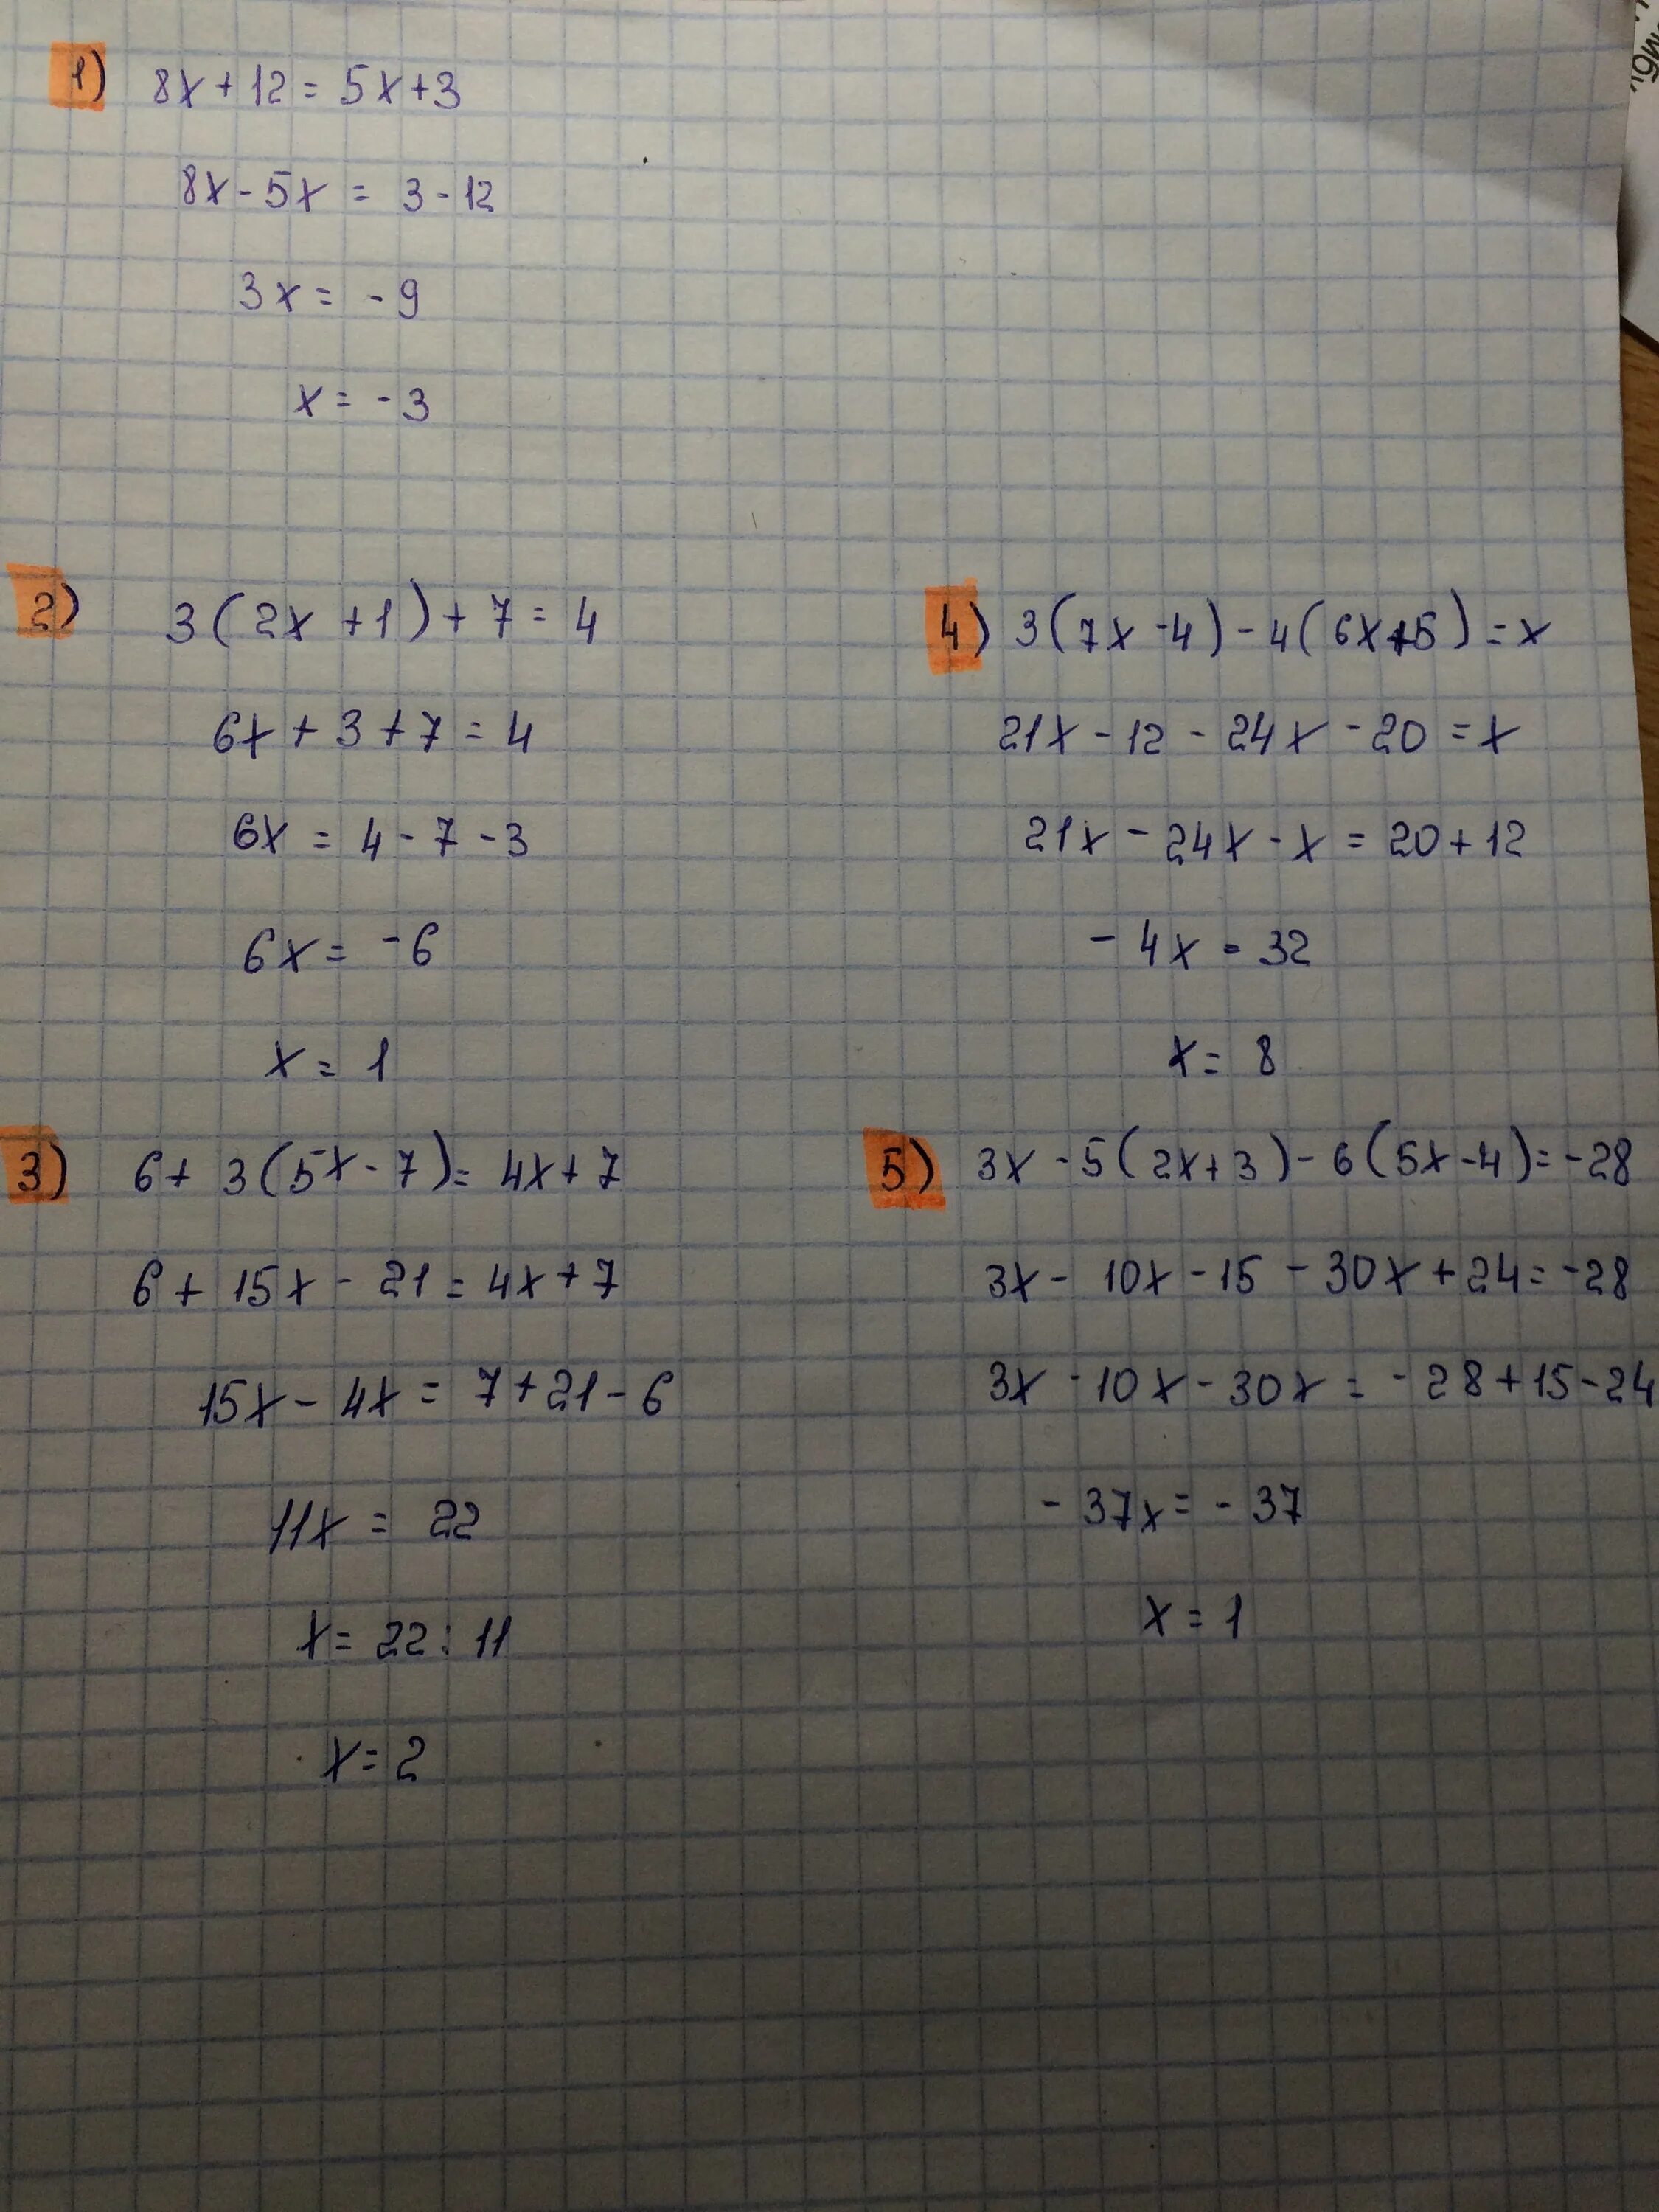 1) 8x + 12 = 5x + 3
8x - 5x = 3 - 12
3x = - 9
x = - 3
2) 3(2x + 1) + 7 = 4
6x + 3 + 7 = 4
6x = 4 - 7 - 3
6x = - 6
x = 1
3) 6 + 3(5x - 7) = 4x + 7
6 + 15x - 21 = 4x + 7
15x - 4x = 7 + 21 - 6
11x = 22
x = 22 : 11
x = 2
4) 3(7x - 4) - 4(6x + 5) = x
21x - 12 - 24x - 20 = x
21x - 24x - x = 20 + 12
- 4x = 32
x = 8
5) 3x - 5(2x + 3) - 6(5x - 4) = - 28
3x - 10x - 15 - 30x + 24 = - 28
3x - 10x - 30x = - 28 + 15 - 24
- 37x = - 37
x = 1